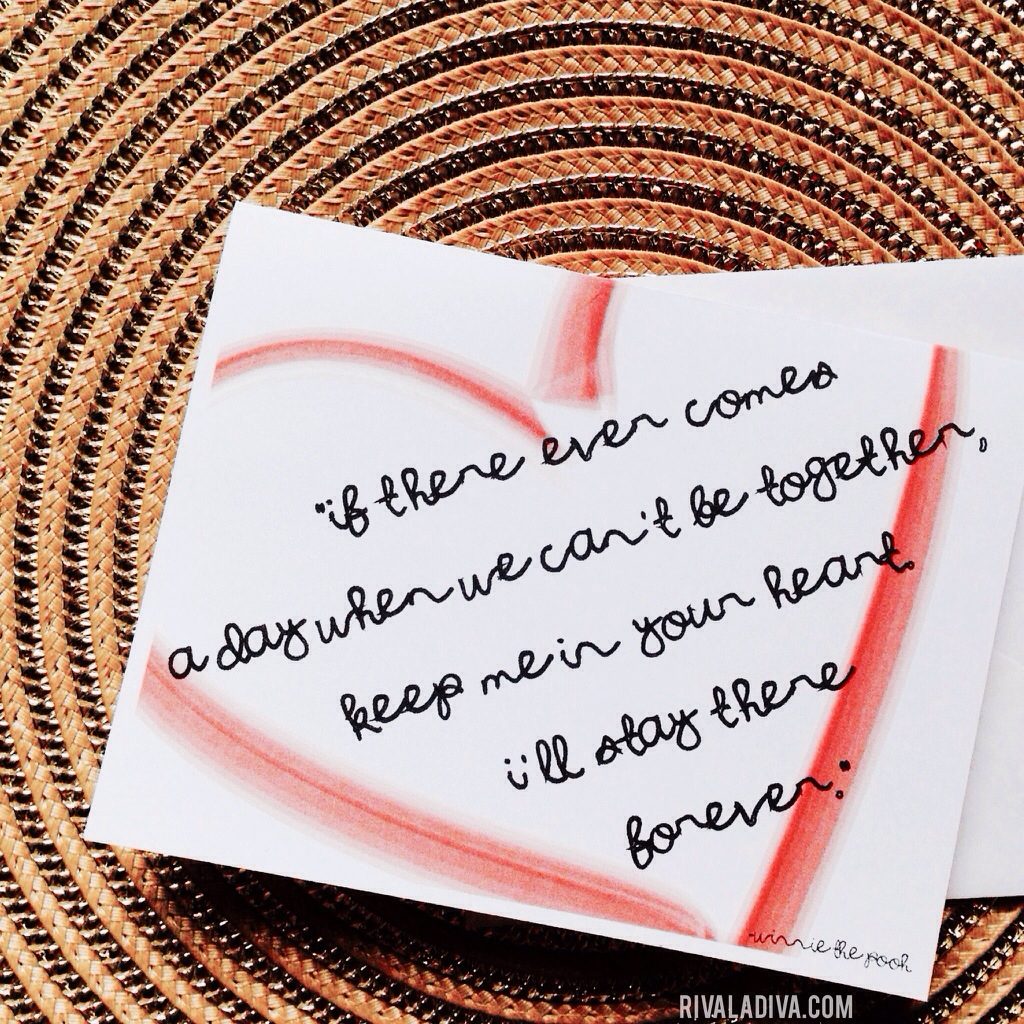 "if there ever comes
a day when we can't be together,
keep me in your heart.
i'll stay there
forever."
-winnie the pooh
RIVALADIVA.COM